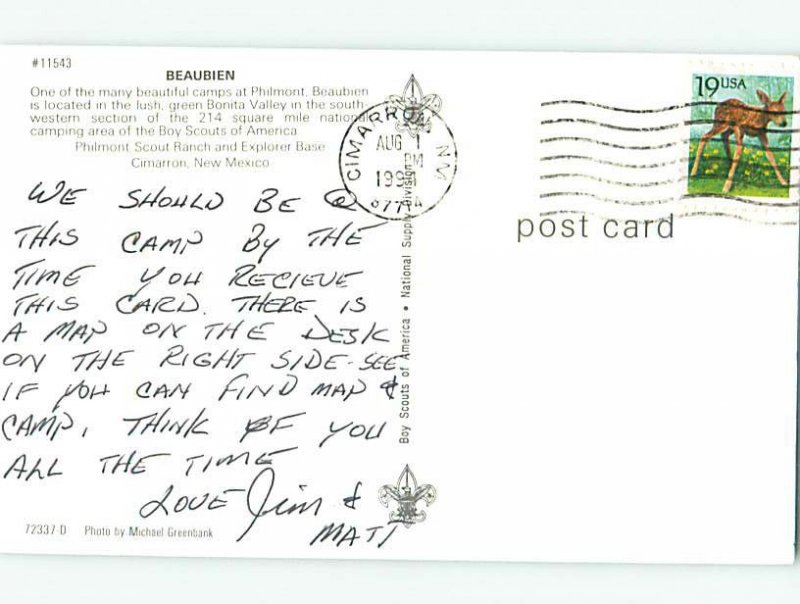 #11543
BEAUBIEN
One of the many beautiful camps at Philmont, Beaubien
is located in the lush, green Bonita Valley in the south
western section of the 214 square mile national
camping area of the Boy Scouts of America
Philmont Scout Ranch and Explorer Base
Cimarron, New Mexico
WE SHOULD BE @
THIS CAMP BY THE
TIME YOU RECIEVE
THIS CARD. THERE IS
A MAP ON THE DESK
ON THE RIGHT SIDE-SEE
IF YOU CAN FIND MAP &
CAMP, THINK OF YOU
ALL THE TIME
LOVE Jim &
MATT
72337-D Photo by Michael Greenbank
Boy Scouts of America • National Supply Division
CIMARRON NM
AUG 1
PM
87714
19USA
post card